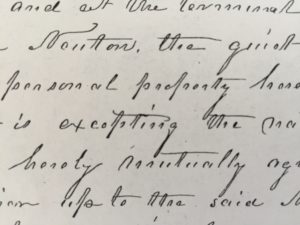 and at the terminat
Newton, the quiet
personal property here
is excepting the na
hereby mutually agr
up to the said